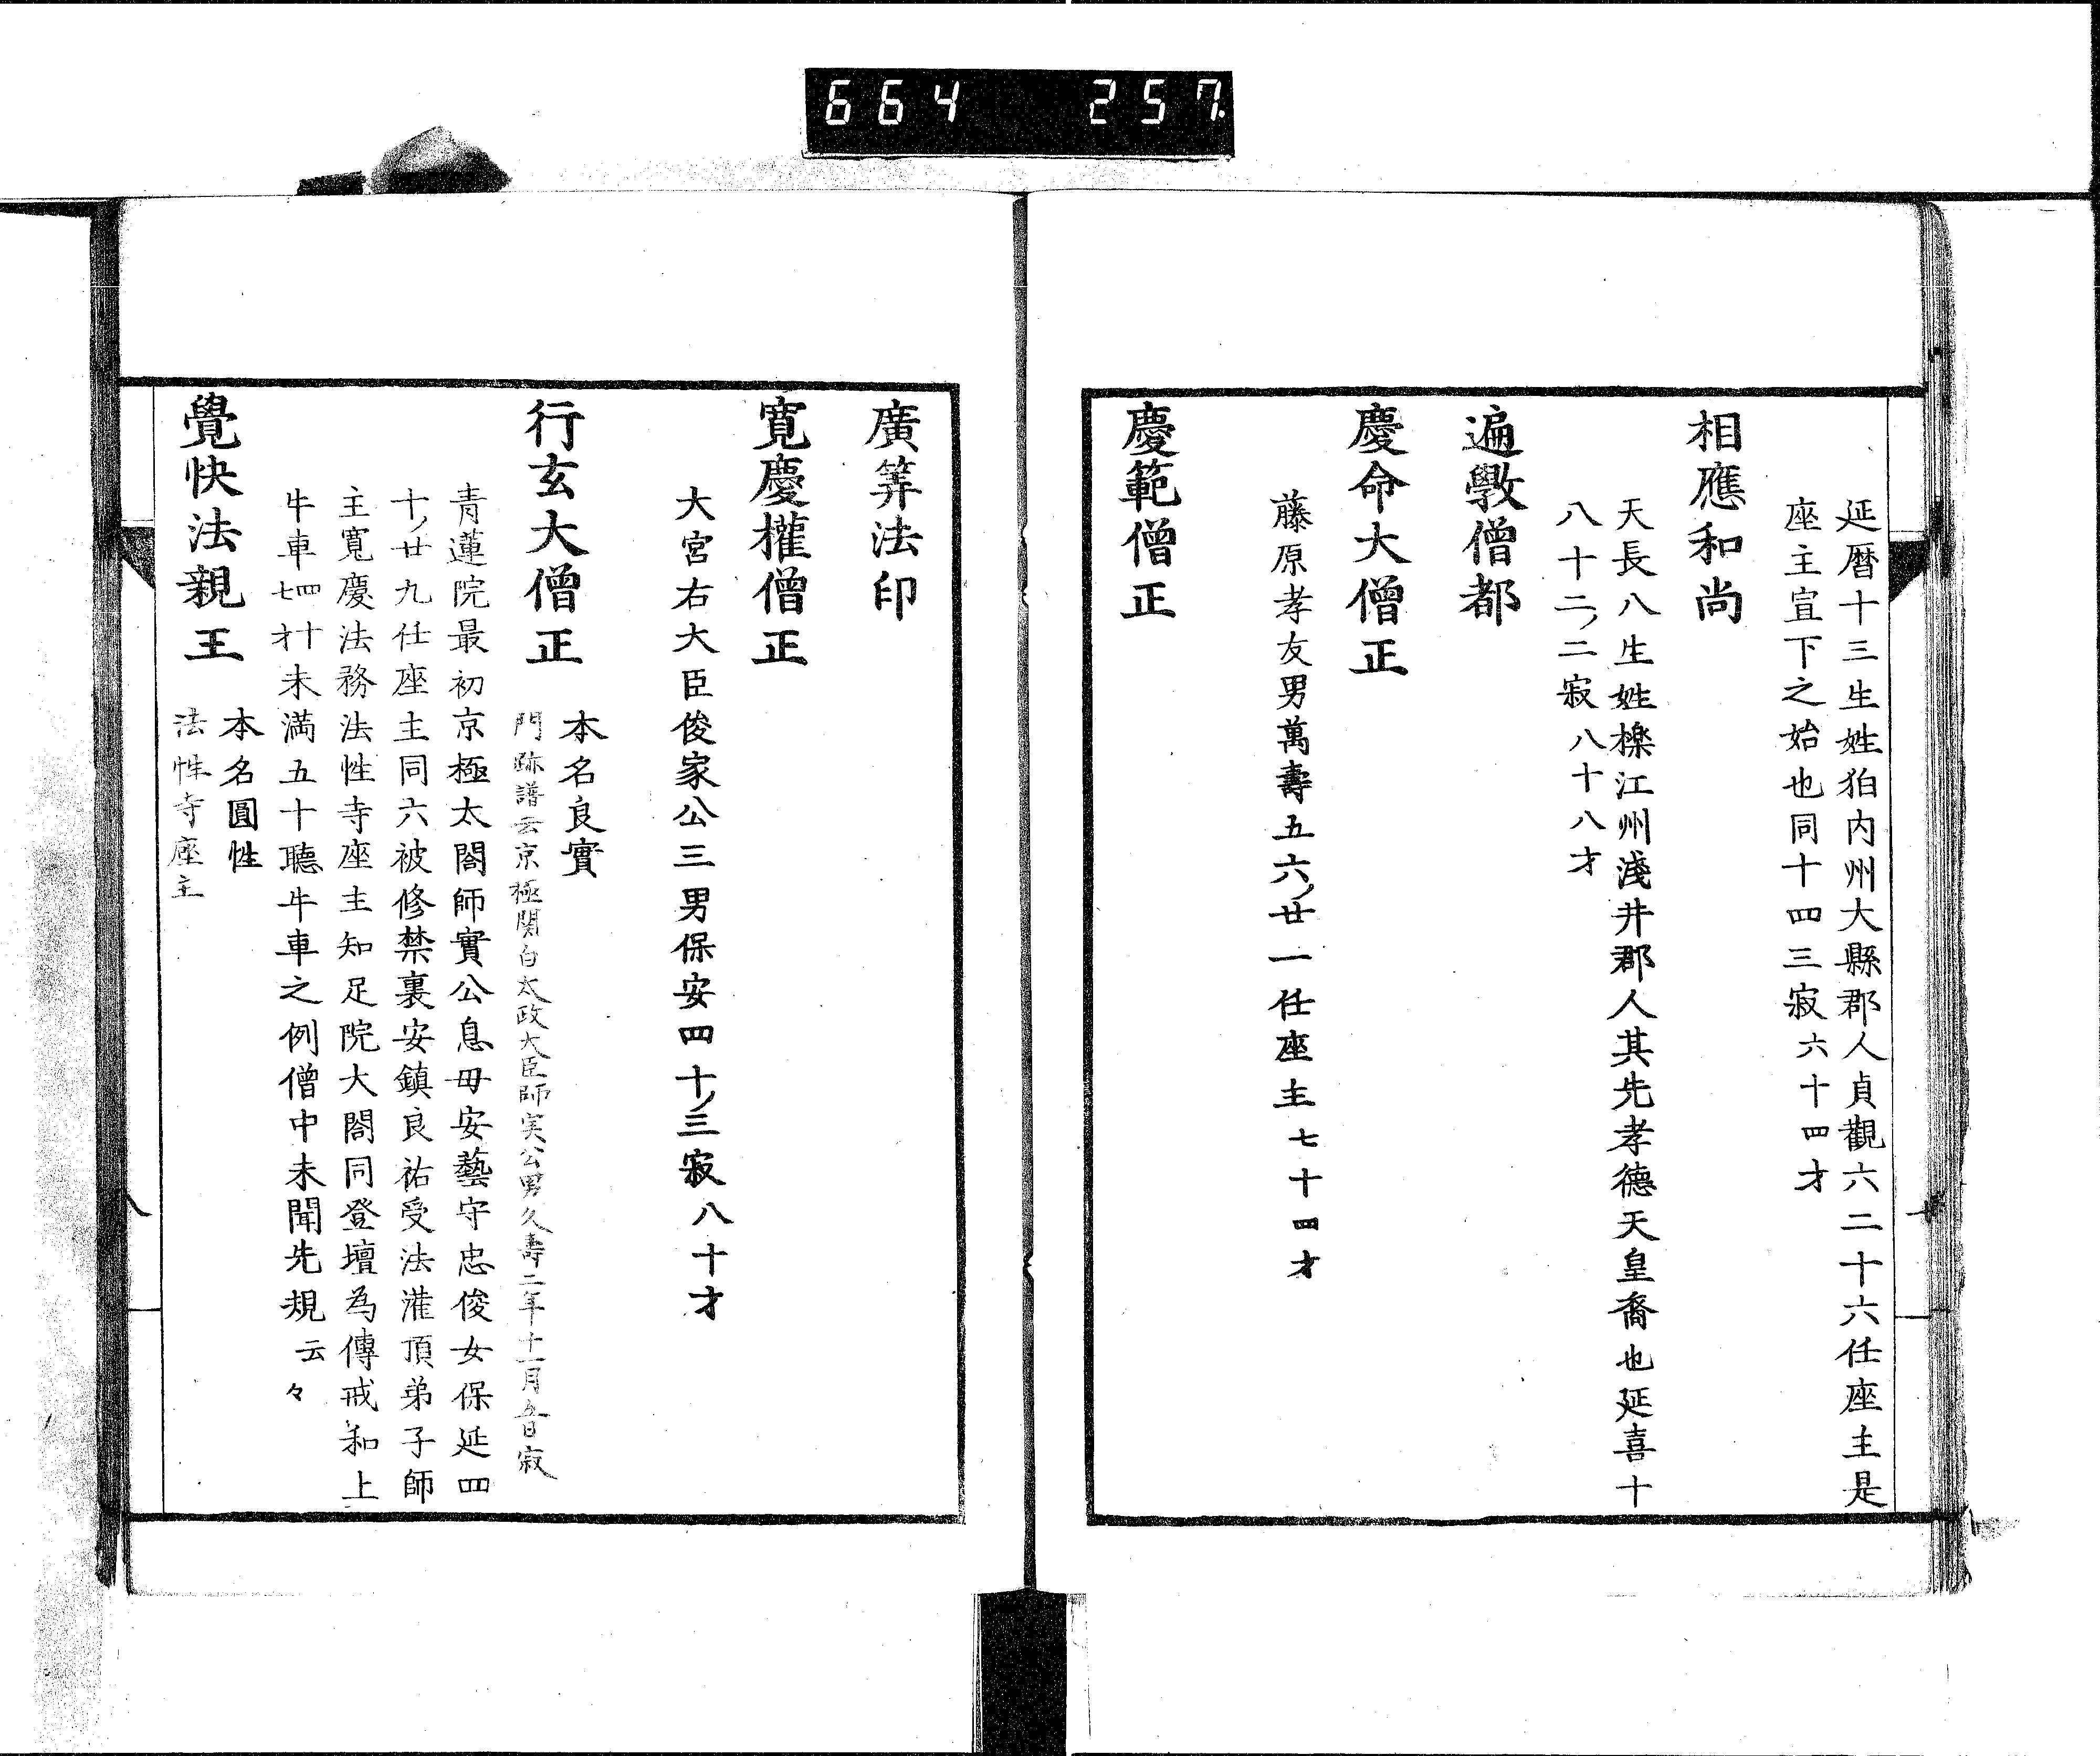 664 257
延暦十三生姓狛内州大縣郡人貞觀六二十六任座主是
座主宣下之始也同十四三寂六十四才
相應和尚
天長八生姓櫟江州淺井郡人其先孝德天皇裔也延喜十
八十二ノ二寂八十八才
遍斅僧都
慶命大僧正
藤原孝友男萬壽五六ノ廿一任座主七十四才
慶範僧正
七
廣筭法印
寛慶權僧正
大宮右大臣俊家公三男保安四十ノ三寂八十才
行玄大僧正 本名良實
門跡譜云京極関白太政大臣師実公男久壽二年十一月五日寂
青蓮院最初京極太閤師實公息毋安藝守忠俊女保延四
十ノ廿九任座主同六被修禁裏安鎮良祐受法灌頂弟子師
主寛慶法務法性寺座主知足院大閤同登壇為傳戒和上
牛車四十七才未満五十聽牛車之例僧中未聞先規云々
覺快法親王 本名圓性
法性寺座主
八